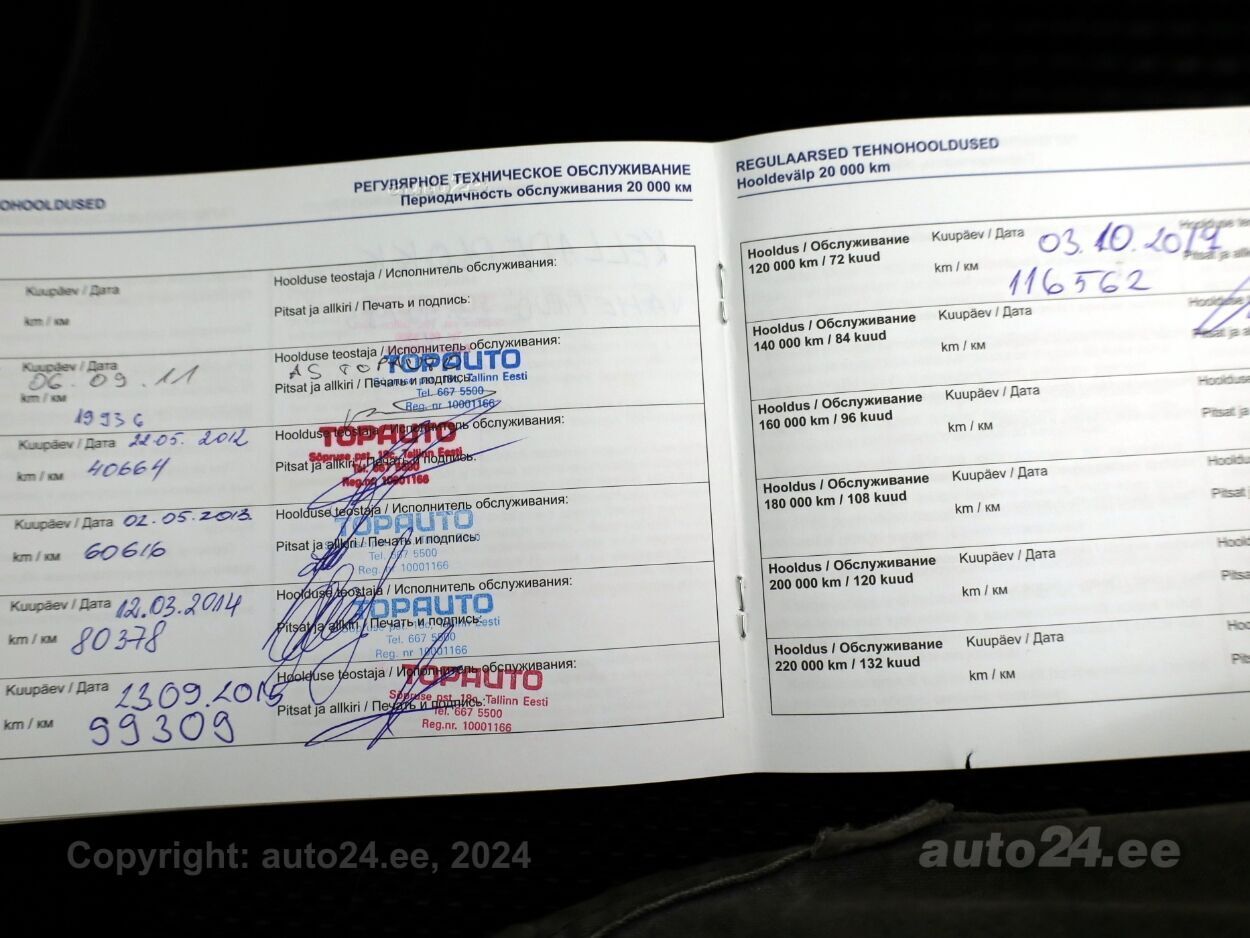 OHOOLDUSED
РЕГУЛЯРНОЕ ТЕХНИЧЕСКОЕ ОБСЛУЖИВАНИЕ
Периодичность обслуживания 20 000 км
Kuupäev / Дата
km / км
Hoolduse teostaja / Исполнитель обслуживания:
Pitsat ja allkiri / Печать и подпись:
Kuupäev / Дата
06.09.11
km / км
19936
Hoolduse teostaja / Исполнитель обслуживания:
AS TOPAUTO
Pitsat ja allkiri / Печать и подпись:
TOPAUTO
Tallinn Eesti
Tel. 667 5500
Reg. nr 10001166
Kuupäev / Дата 22.05.2012
km / км 40664
Hoolduse teostaja / Исполнитель обслуживания:
Pitsat ja allkiri / Печать и подпись:
TOPAUTO
Sõpruse pst. 18c, Tallinn Eesti
Tel. 667 5500
Reg.nr. 10001166
Kuupäev / Дата 02.05.2013.
km / км 60616
Hoolduse teostaja / Исполнитель обслуживания:
Pitsat ja allkiri / Печать и подпись:
TOPAUTO
Tel. 667 5500
Reg. nr 10001166
Kuupäev / Дата 12.03.2014
km / км 80378
Hoolduse teostaja / Исполнитель обслуживания:
Pitsat ja allkiri / Печать и подпись:
TOPAUTO
Tallinn Eesti
Tel. 667 5500
Reg. nr 10001166
Kuupäev / Дата 23.09.2015
km / км 99309
Hoolduse teostaja / Исполнитель обслуживания:
Pitsat ja allkiri / Печать и подпись:
TOPAUTO
Sõpruse pst. 18c, Tallinn Eesti
Tel. 667 5500
Reg.nr. 10001166
REGULAARSED TEHNOHOOLDUSED
Hooldevälp 20 000 km
Hooldus / Обслуживание
120 000 km / 72 kuud
Kuupäev / Дата 03.10.2017
km / км 116562
Hooldus / Обслуживание
140 000 km / 84 kuud
Kuupäev / Дата
km / км
Hooldus / Обслуживание
160 000 km / 96 kuud
Kuupäev / Дата
km / км
Hooldus / Обслуживание
180 000 km / 108 kuud
Kuupäev / Дата
km / км
Hooldus / Обслуживание
200 000 km / 120 kuud
Kuupäev / Дата
km / км
Hooldus / Обслуживание
220 000 km / 132 kuud
Kuupäev / Дата
km / км
Copyright: auto24.ee, 2024
auto24.ee